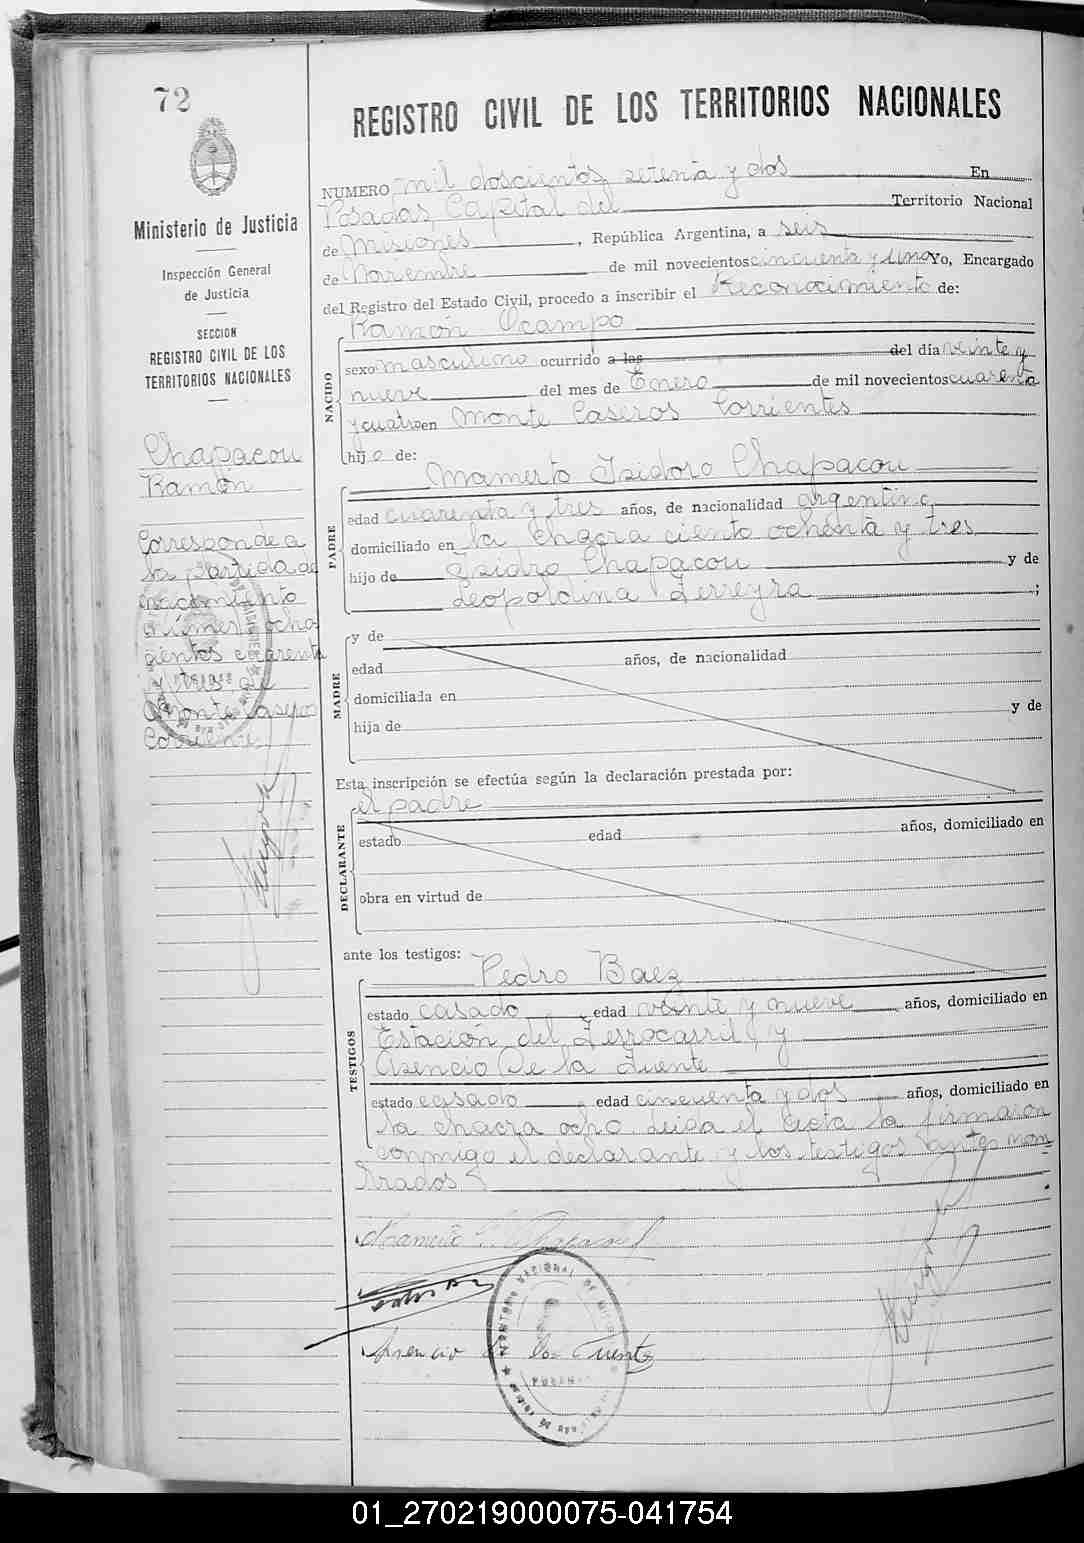 72
REGISTRO CIVIL DE LOS TERRITORIOS NACIONALES
Ministerio de Justicia
Inspección General
de Justicia
SECCION
REGISTRO CIVIL DE LOS
TERRITORIOS NACIONALES
Chapacou
Ramón
Corresponde a
la partida de
nacimiento
número ocho
cientos cuarenta
y tres de
Monte Caseros
Corrientes
NUMERO mil doscientos setenta y dos En
Posadas Capital del Territorio Nacional
de Misiones, República Argentina, a seis
de Noviembre de mil novecientos cincuenta y uno Yo, Encargado
del Registro del Estado Civil, procedo a inscribir el Reconocimiento de:
Ramón Ocampo
NACIDO
sexo masculino ocurrido a las del día veinte y
nueve del mes de Enero de mil novecientos cuarenta
y cuatro en Monte Caseros Corrientes
hijo de:
Mamerto Isidoro Chapacou
PADRE
edad cuarenta y tres años, de nacionalidad argentino,
domiciliado en la chacra ciento ochenta y tres
hijo de Isidro Chapacou y de
Leopoldina Ferreyra ;
MADRE
y de
edad años, de nacionalidad
domiciliada en
hija de y de
Esta inscripción se efectúa según la declaración prestada por:
el padre
DECLARANTE
estado edad años, domiciliado en
obra en virtud de
ante los testigos:
Pedro Baez
TESTIGOS
estado casado, edad veinte y nueve años, domiciliado en
Estación del Ferrocarril y
Asencio De la Fuente
estado casado, edad cincuenta y dos años, domiciliado en
la chacra ocho. Leida el Acta la firmaron
conmigo el declarante y los testigos antes nom
brados
Mamerto I. Chapacou
Asencio de la Fuente
01_270219000075-041754